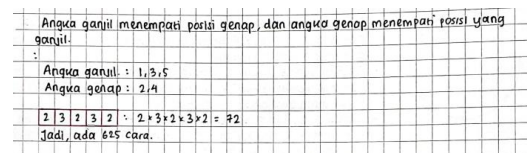 Angka ganjil menempati posisi genap, dan angka genap menempati posisi yang
ganjil.
:
Angka ganjil : 1,3,5
Angka genap : 2,4
2 3 2 3 2 : 2 × 3 × 2 × 3 × 2 = 72
Jadi, ada 625 cara.